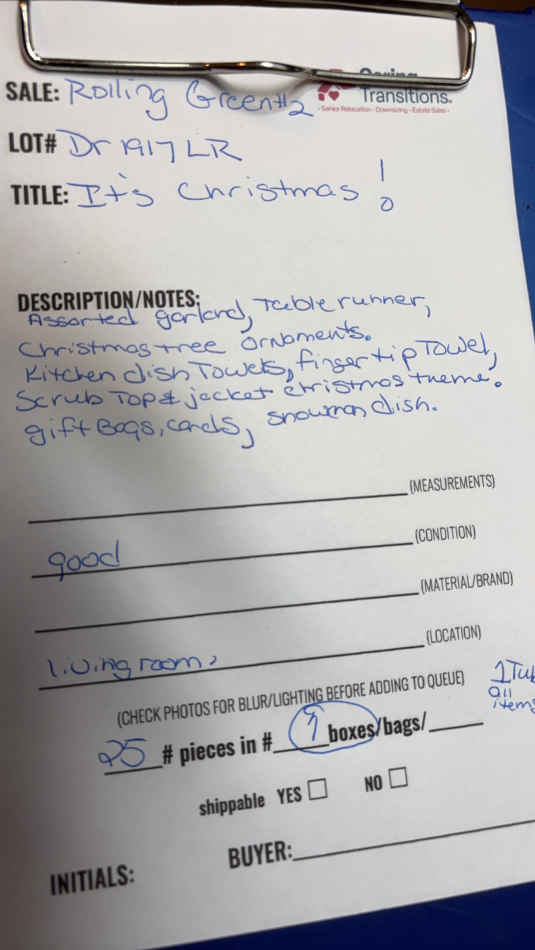 SALE: Rolling Green #2
Caring
Transitions.
- Senior Relocation - Downsizing - Estate Sales -
LOT# Dr 1917 LR
TITLE: It's Christmas!
DESCRIPTION/NOTES:
Assorted garland, Table runner,
Christmas tree ornaments.
Kitchen dish Towels, fingertip Towel,
Scrub Top & jacket christmas theme.
gift Bags, cards, snowman dish.
(MEASUREMENTS)
good (CONDITION)
(MATERIAL/BRAND)
living room (LOCATION)
(CHECK PHOTOS FOR BLUR/LIGHTING BEFORE ADDING TO QUEUE)
1 Tub
all
items
25 # pieces in # boxes/bags/
shippable YES NO
INITIALS: BUYER: